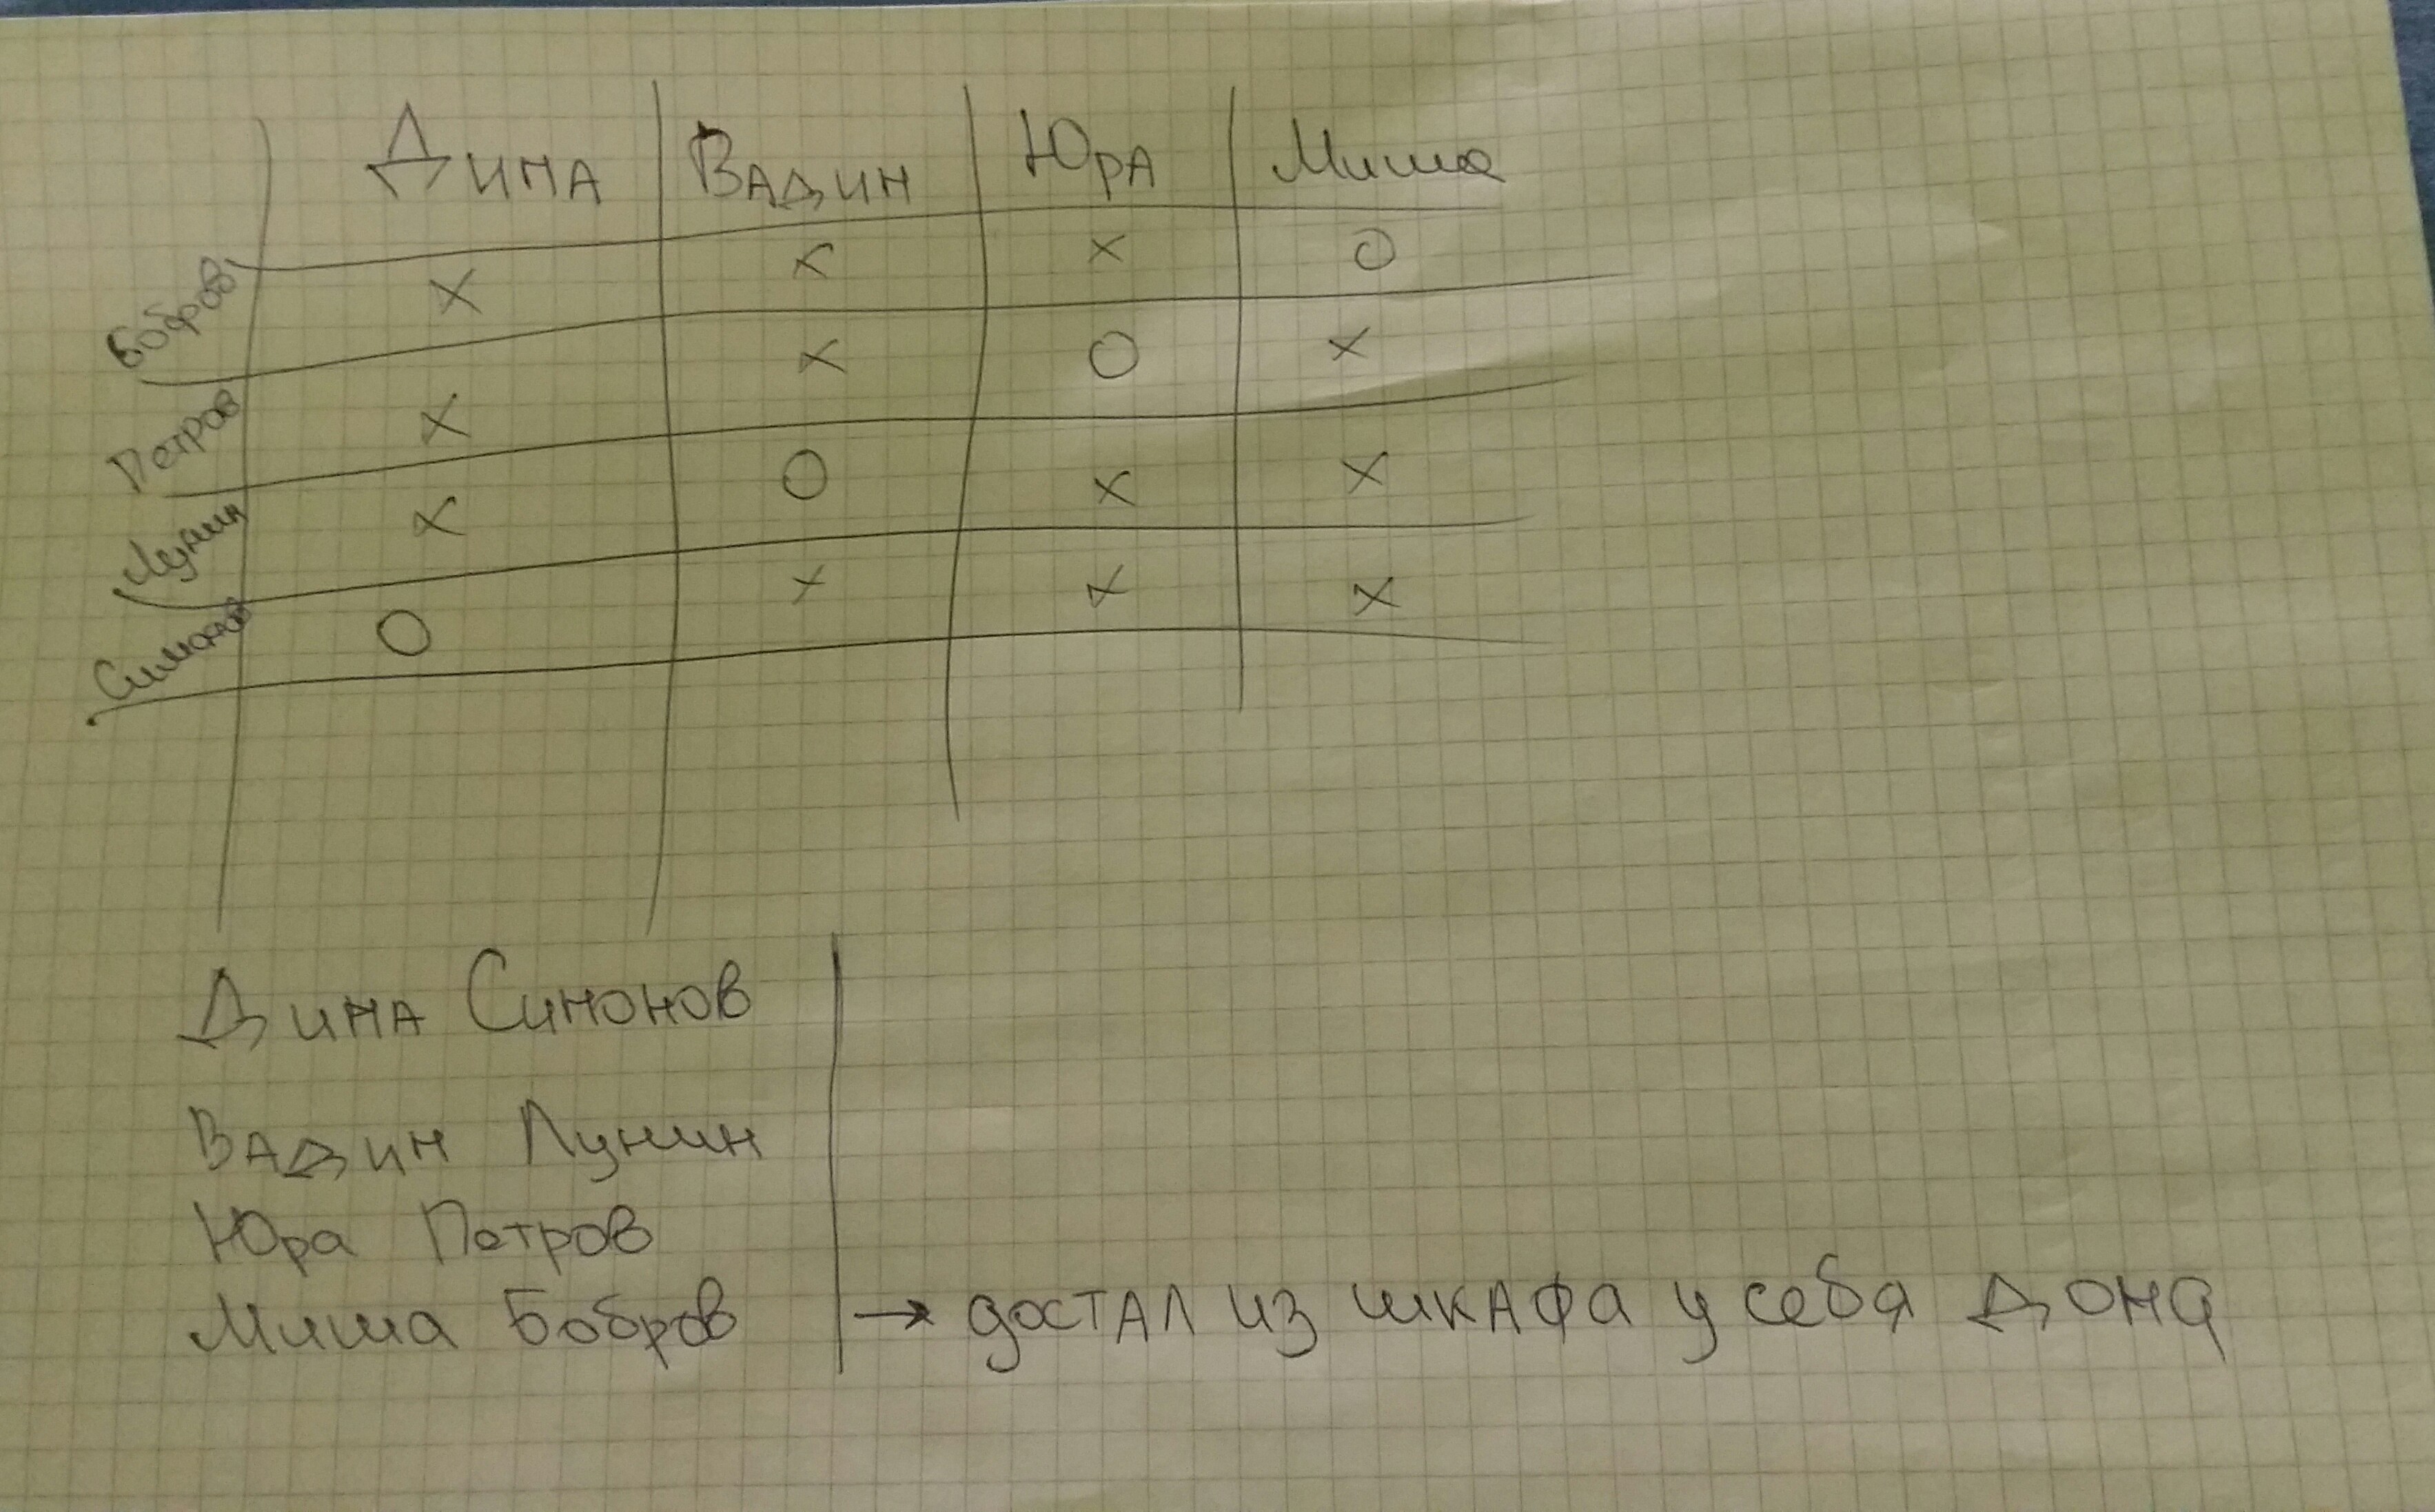 Дима Вадим Юра Миша
Бобров х х х О
Петров х х О х
Лунин х О х х
Симонов О х х х
Дима Симонов
Вадим Лунин
Юра Петров
Миша Бобров → достал из шкафа у себя дома